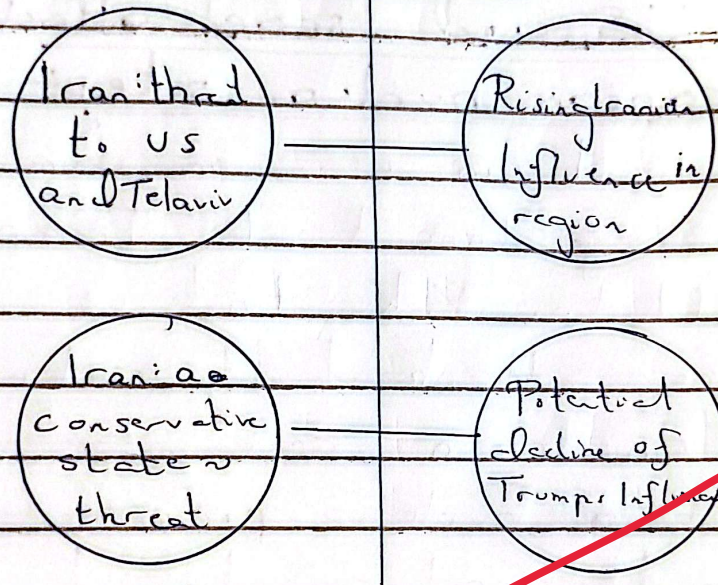 Iran: thret
to US
and Telaviv
Rising Iranian
Influence in
region
Iran: a
conservative
state ~
threat
Potential
decline of
Trumps Influence